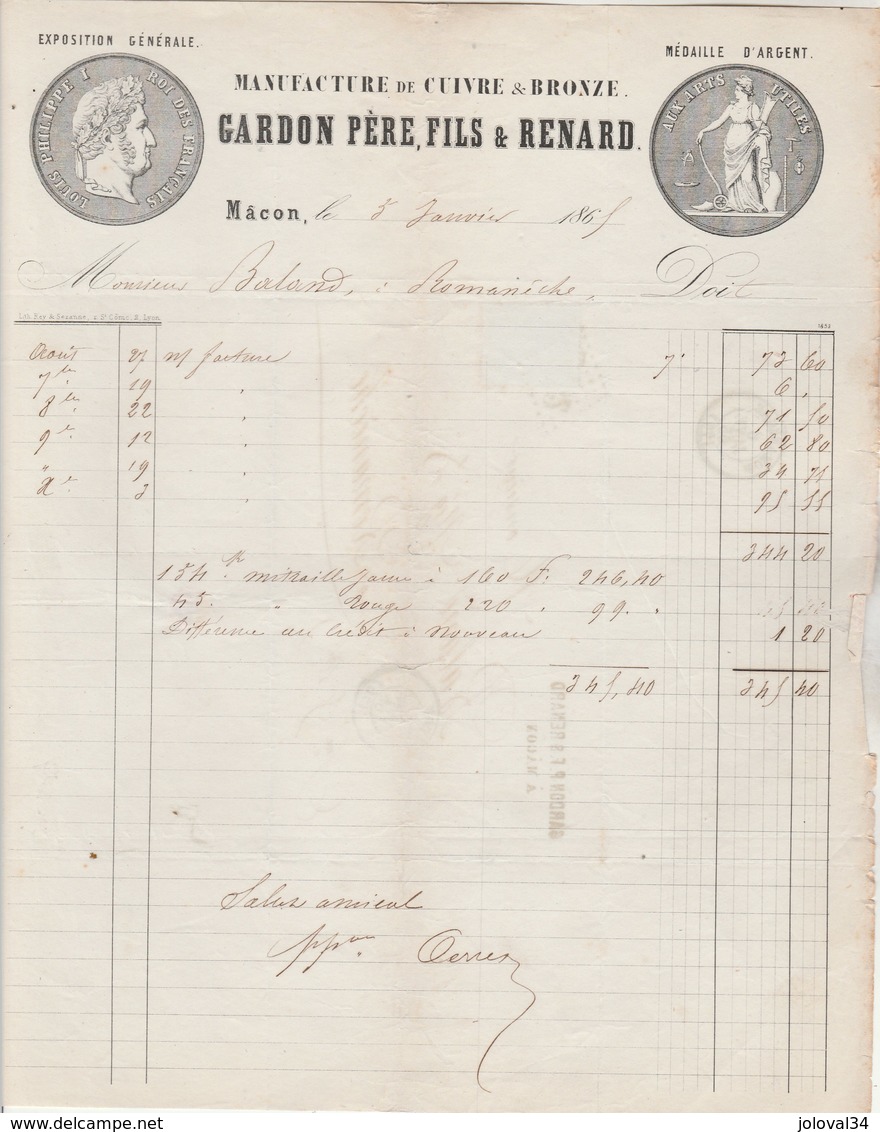 EXPOSITION GÉNÉRALE.
MÉDAILLE D'ARGENT.
LOUIS PHILIPPE I ROI DES FRANÇAIS
AUX ARTS UTILES
MANUFACTURE DE CUIVRE & BRONZE.
GARDON PÈRE, FILS & RENARD.
Mâcon, le 5 Janvier 1865
Monsieur Baland, à Romanèche, Doit
Lith. Rey & Sezanne, r. St Côme, 8, Lyon
Août 27 n/ facture 73 60
7bre 19 " 6 "
8bre 22 " 71 50
9bre 12 " 62 80
" 19 " 34 75
Xbre 3 " 95 55
344 20
154 k. mitraille jaune à 160 F. 246,40
45. " rouge 220 " 99 "
Différence au Crédit à Nouveau 1 20
345,40 345 40
GARDON P. F. & RENARD
A MÂCON
Salut amical
delcampe.net
joloval34